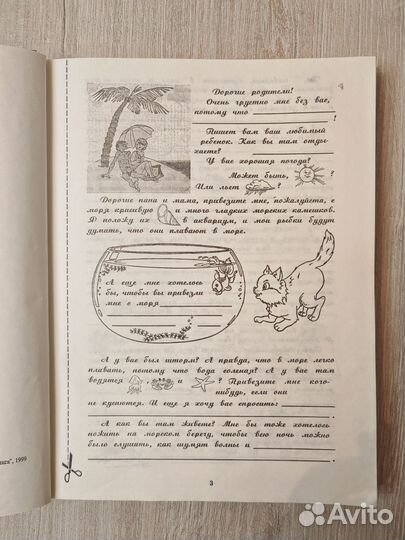 Дорогие родители!
Очень грустно мне без вас,
потому что !
Пишет вам ваш любимый
ребенок. Как вы там отды-
хаете?
У вас хорошая погода?
Может быть, ?
Или льет ?
Дорогие папа и мама, привезите мне, пожалуйста, с
моря красивую и много гладких морских камешков.
Я положу их в аквариум, и мои рыбки будут
думать, что они плавают в море.
А еще мне хотелось
бы, чтобы вы привезли
мне с моря
А у вас был шторм? А правда, что в море легко
плавать, потому что вода соленая? А у вас там
водятся , и ? Привезите мне кого-
нибудь, если они
не кусаются. И еще я хочу вас спросить:
А как вы там живете? Мне бы тоже хотелось
пожить на морском берегу, чтобы всю ночь можно
было слушать, как шумят волны и
", 1999
3
Avito